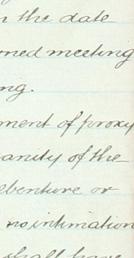 n the date
rned meeting
ng.
ment of proxy
anity of the
ebenture or
no intimation
shall have